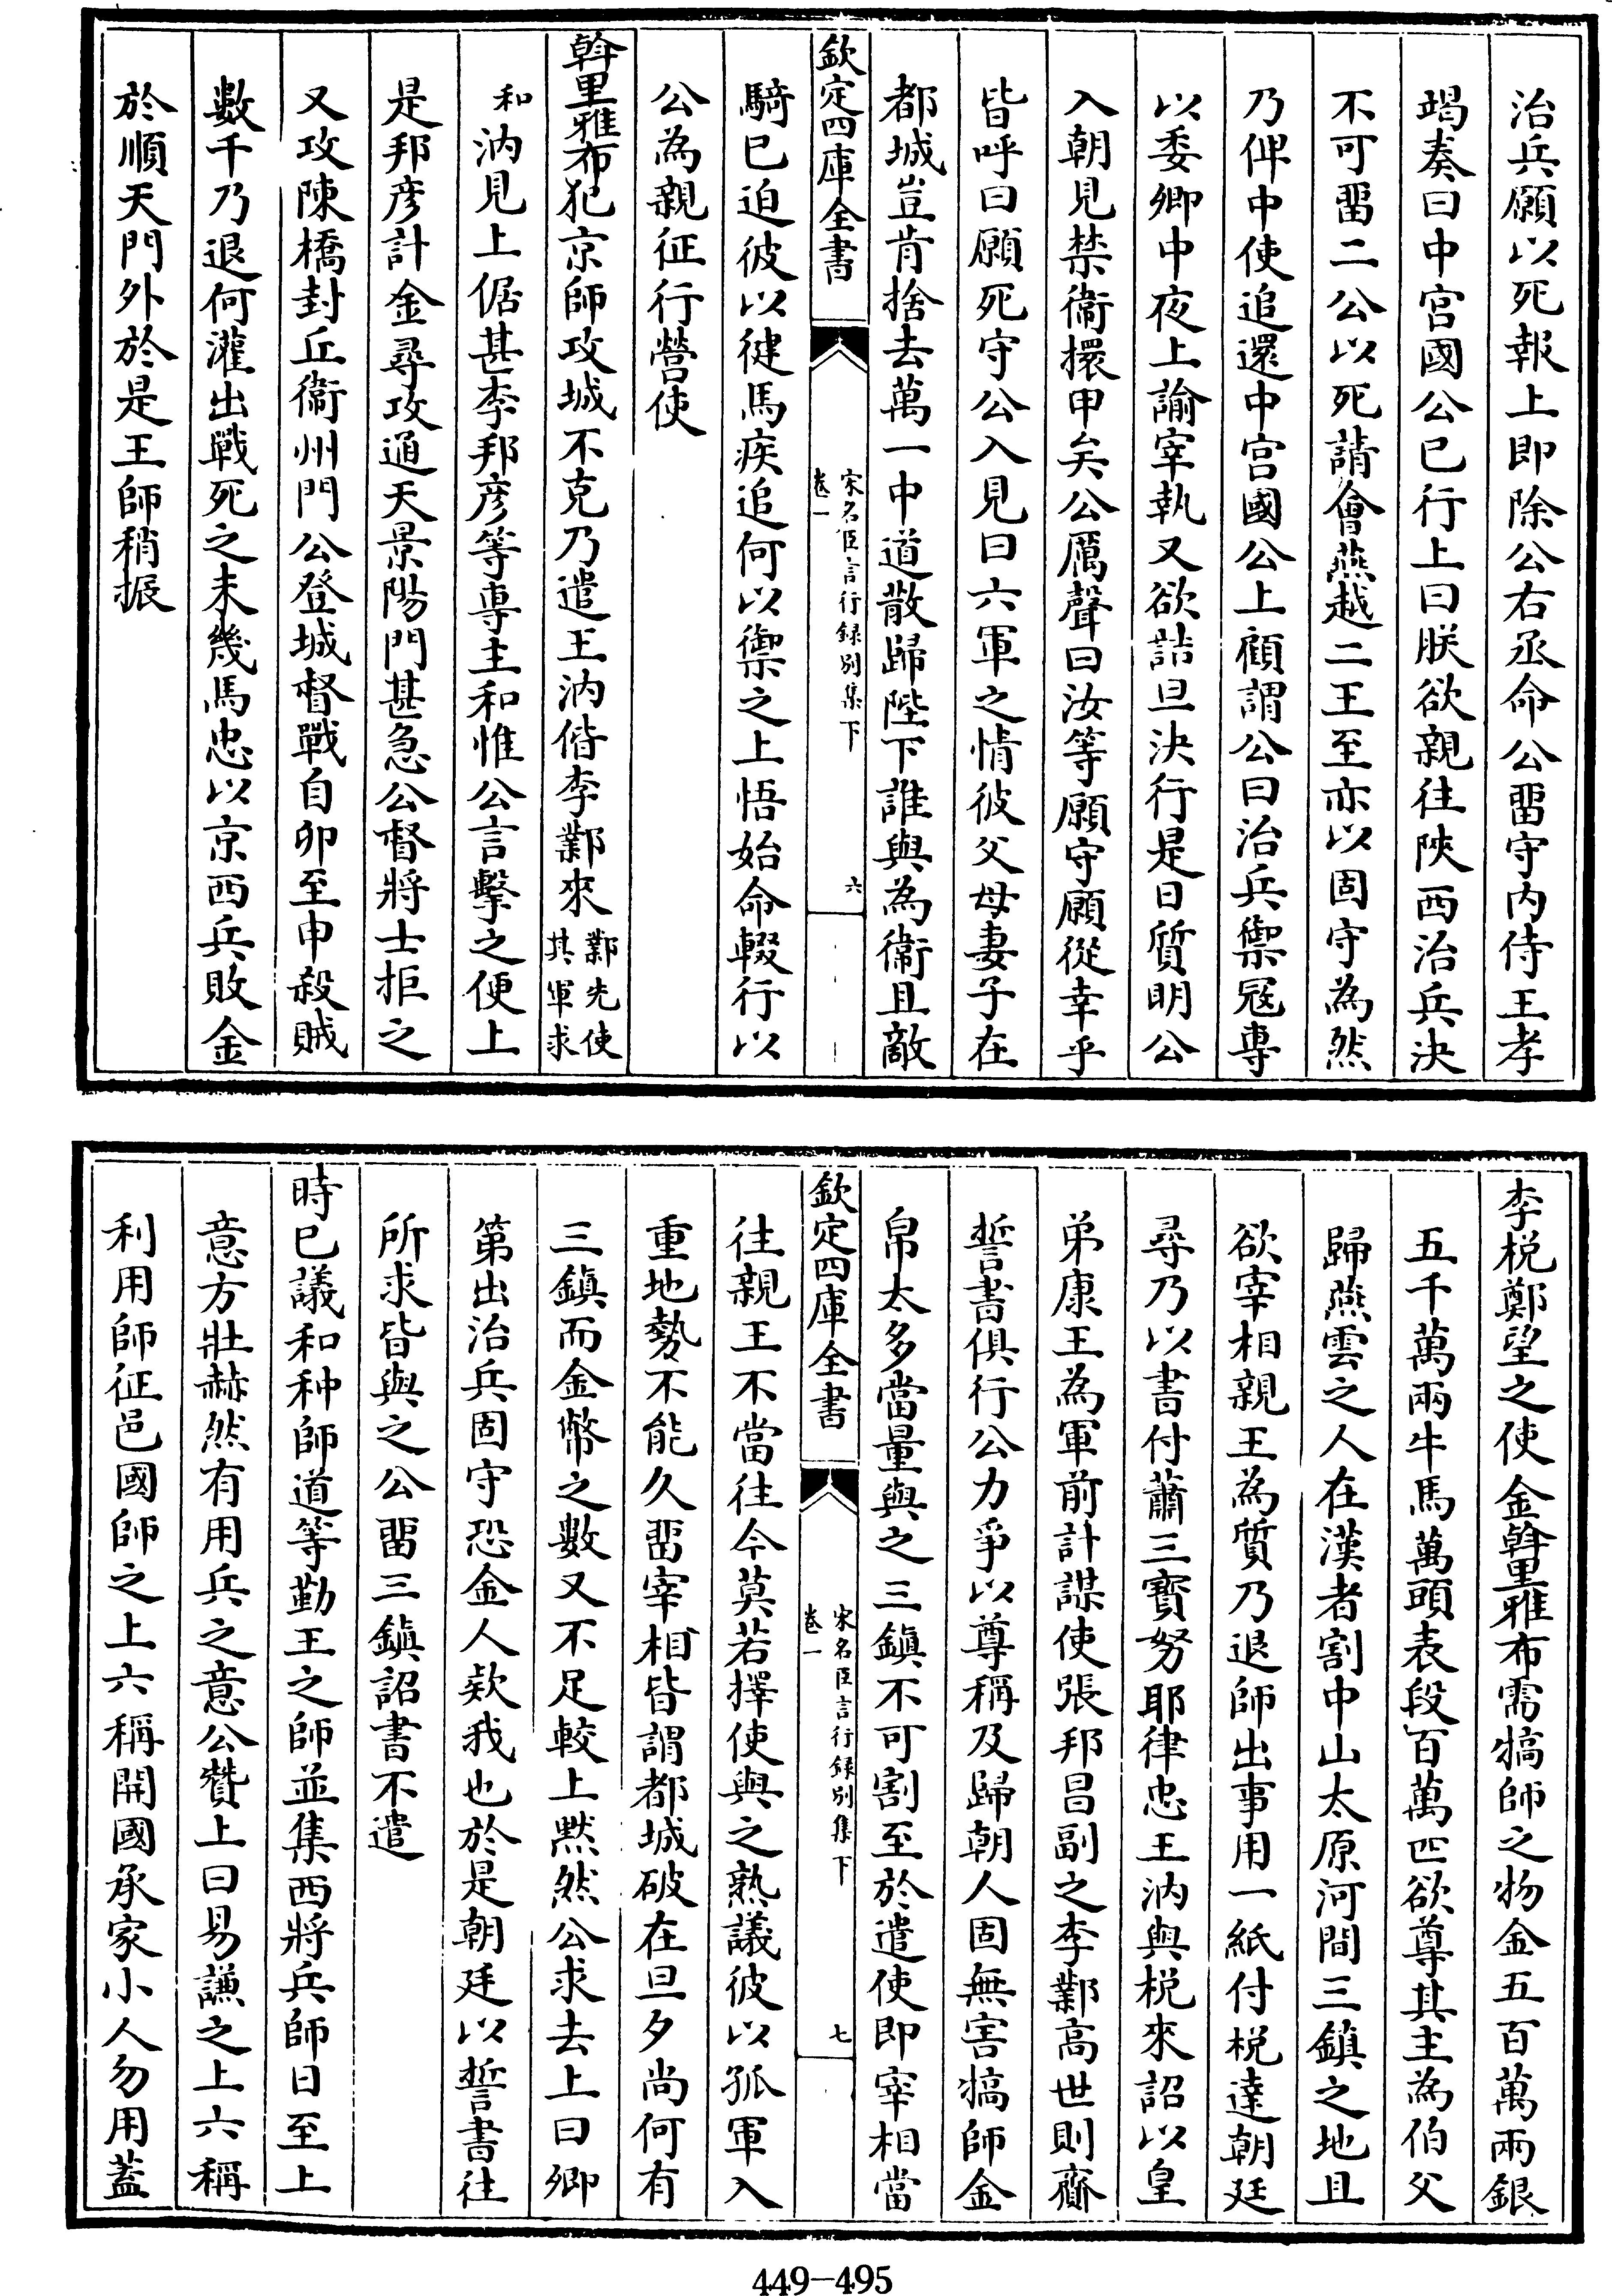 治兵願以死報上即除公右丞命公畱守内侍王孝
竭奏曰中宫國公已行上曰朕欲親往陜西治兵決
不可畱二公以死請會燕越二王至亦以固守為然
乃俾中使追還中宫國公上顧謂公曰治兵禦冦專
以委卿中夜上諭宰執又欲詰旦決行是日質明公
入朝見禁衞擐甲矣公厲聲曰汝等願守願從幸乎
皆呼曰願死守公入見曰六軍之情彼父母妻子在
都城豈肯捨去萬一中道散歸陛下誰與為衞且敵
欽定四庫全書
宋名臣言行録别集下
卷一
六
騎已迫彼以健馬疾追何以禦之上悟始命輟行以
公為親征行營使
斡里雅布犯京師攻城不克乃遣王汭偕李鄴來鄴先使
其軍求
和汭見上倨甚李邦彦等專主和惟公言擊之便上
是邦彦計金尋攻通天景陽門甚急公督將士拒之
又攻陳橋封丘衞州門公登城督戰自卯至申殺賊
數千乃退何灌出戰死之未幾馬忠以京西兵敗金
於順天門外於是王師稍振
李梲鄭望之使金斡里雅布需犒師之物金五百萬兩銀
五千萬兩牛馬萬頭表段百萬匹欲尊其主為伯父
歸燕雲之人在漢者割中山太原河間三鎮之地且
欲宰相親王為質乃退師出事用一紙付梲達朝廷
尋乃以書付蕭三寳努耶律忠王汭與梲來詔以皇
弟康王為軍前計謀使張邦昌副之李鄴高世則齎
誓書俱行公力爭以尊稱及歸朝人固無害犒師金
帛太多當量與之三鎮不可割至於遣使即宰相當
欽定四庫全書
宋名臣言行録别集下
卷一
七
往親王不當往今莫若擇使與之熟議彼以孤軍入
重地勢不能久畱宰相皆謂都城破在旦夕尚何有
三鎮而金幣之數又不足較上黙然公求去上曰卿
第出治兵固守恐金人欵我也於是朝廷以誓書往
所求皆與之公畱三鎮詔書不遣
時已議和种師道等勤王之師並集西將兵師日至上
意方壯赫然有用兵之意公贊上曰易謙之上六稱
利用師征邑國師之上六稱開國承家小人勿用蓋
449—495